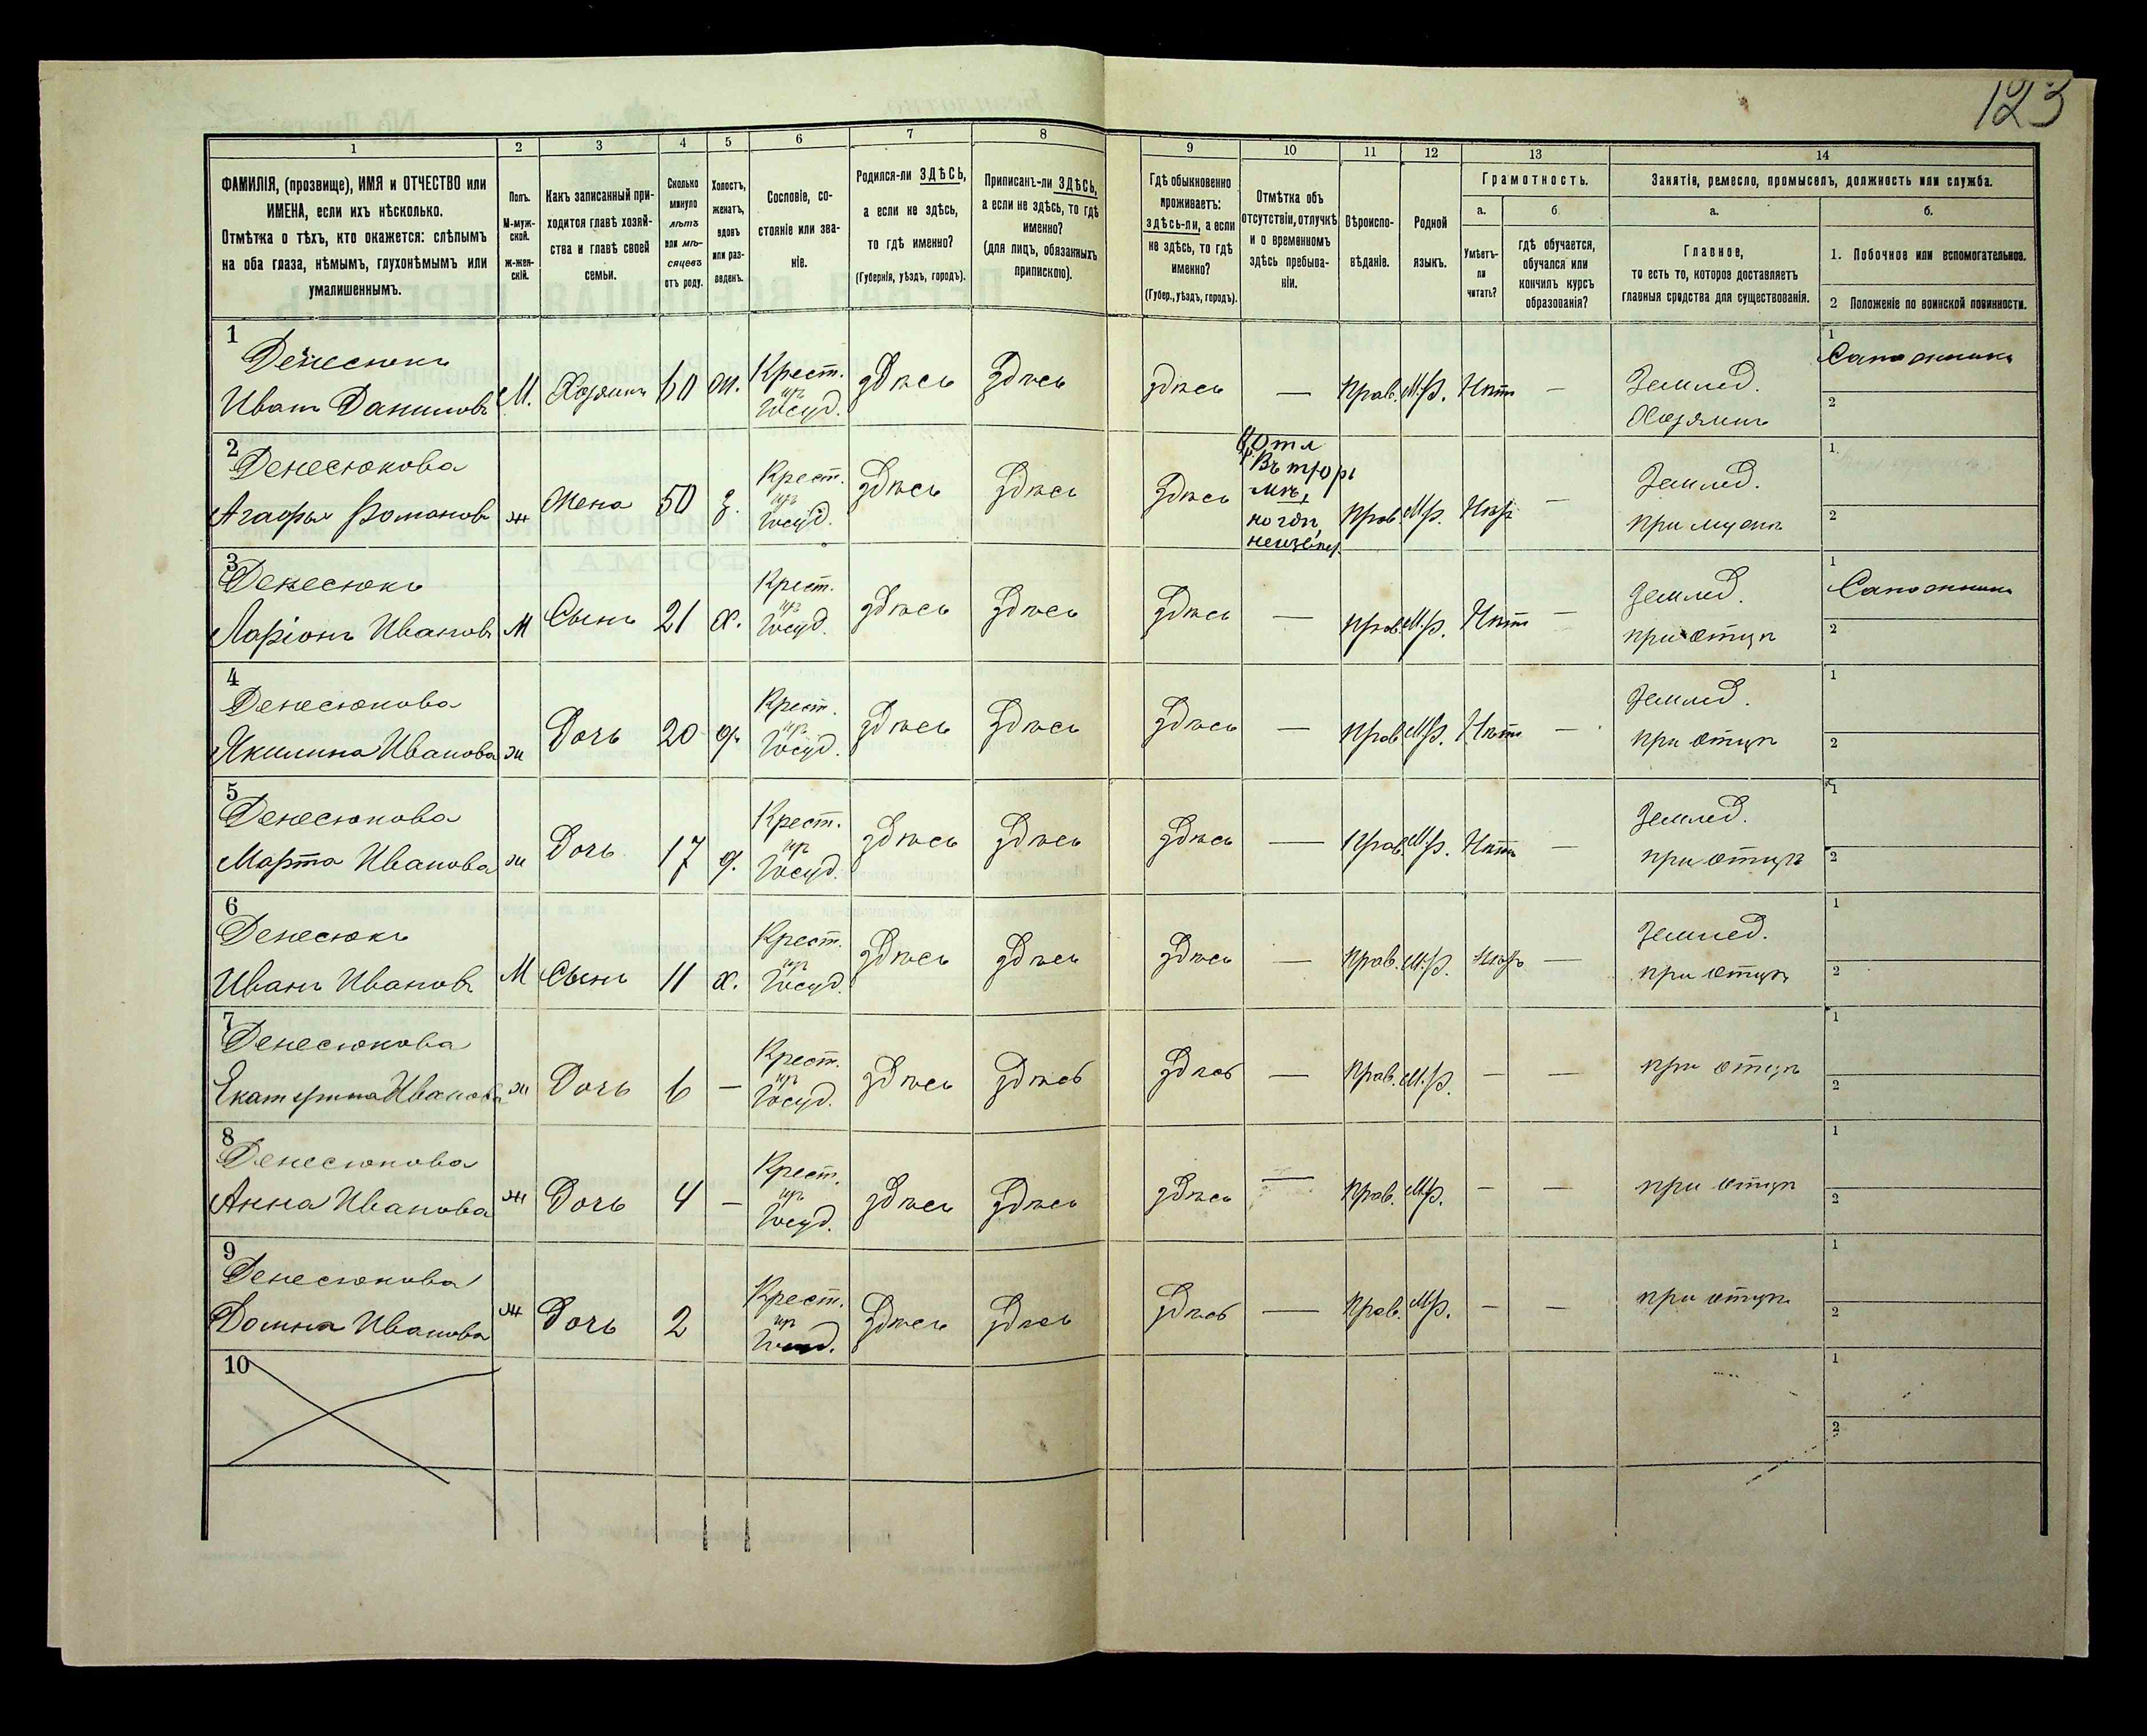 123
1
2
3
4
5
6
7
8
9
10
11
12
13
14
ФАМИЛІЯ, (прозвище), ИМЯ и ОТЧЕСТВО или
ИМЕНА, если ихъ нѣсколько.
Отмѣтка о тѣхъ, кто окажется: слѣпымъ
на оба глаза, нѣмымъ, глухонѣмымъ или
умалишеннымъ.
Полъ.
М-муж-
ской.
ж-жен-
скій.
Какъ записанный при-
ходится главѣ хозяй-
ства и главѣ своей
семьи.
Сколько
минуло
лѣтъ
или мѣ-
сяцевъ
отъ роду.
Холостъ,
женатъ,
вдовъ
или раз-
веденъ.
Сословіе, со-
стояніе или зва-
ніе.
Родился-ли ЗДѢСЬ,
а если не здѣсь,
то гдѣ именно?
(Губернія, уѣздъ, городъ).
Приписанъ-ли ЗДѢСЬ,
а если не здѣсь, то гдѣ
именно?
(для лицъ, обязанныхъ
припискою).
Гдѣ обыкновенно
проживаетъ:
здѣсь-ли, а если
не здѣсь, то гдѣ
именно?
(Губер., уѣздъ, городъ).
Отмѣтка объ
отсутствіи, отлучкѣ
и о временномъ
здѣсь пребыва-
ніи.
Вѣроиспо-
вѣданіе.
Родной
языкъ.
Грамотность.
а.
Умѣетъ-
ли
читать?
б.
гдѣ обучается,
обучался или
кончилъ курсъ
образованія?
Занятіе, ремесло, промыселъ, должность или служба.
а.
Главное,
то есть то, которое доставляетъ
главныя средства для существованія.
б.
1. Побочное или вспомогательное.
2 Положеніе по воинской повинности.
1
Денесюкъ
Иванъ Даниловъ М. Хозяинъ 60 ж. Крест. из Госуд. здѣсь здѣсь здѣсь — Прав. М.р. Нѣтъ — Землед. Хозяинъ 1 Сапожникъ 2
2
Денесюкова
Агафья Романов ж Жена 50 з. Крест. из Госуд. здѣсь здѣсь здѣсь Отл Въ тюрьмѣ, Прав. М.р. Нѣтъ — Землед. при мужѣ 1 2
3
Денесюкъ
Ларіонъ Ивановъ М Сынъ 21 х. Крест. из Госуд. здѣсь здѣсь здѣсь — Прав. М.р. Нѣтъ — Землед. при отцѣ 1 Сапожникъ 2
4
Денесюкова
Якилина Иванова ж Дочь 20 д. Крест. из Госуд. здѣсь здѣсь здѣсь — Прав. М.р. Нѣтъ — Землед. при отцѣ 1 2
5
Денесюкова
Марта Иванова ж Дочь 17 д. Крест. из Госуд. здѣсь здѣсь здѣсь — Прав. М.р. Нѣтъ — Землед. при отцѣ 1 2
6
Денесюкъ
Иванъ Ивановъ М Сынъ 11 х. Крест. из Госуд. здѣсь здѣсь здѣсь — Прав. М.р. Нѣтъ — Землед. при отцѣ 1 2
7
Денесюкова
Екатерина Иванова ж Дочь 6 — Крест. из Госуд. здѣсь здѣсь здѣсь — Прав. М.р. — — при отцѣ 1 2
8
Денесюкова
Анна Иванова ж Дочь 4 — Крест. из Госуд. здѣсь здѣсь здѣсь — Прав. М.р. — — при отцѣ 1 2
9
Денесюкова
Домна Иванова ж Дочь 2 Крест. из здѣсь здѣсь здѣсь — Прав. М.р. — — при отцѣ 1 2
10
1
2